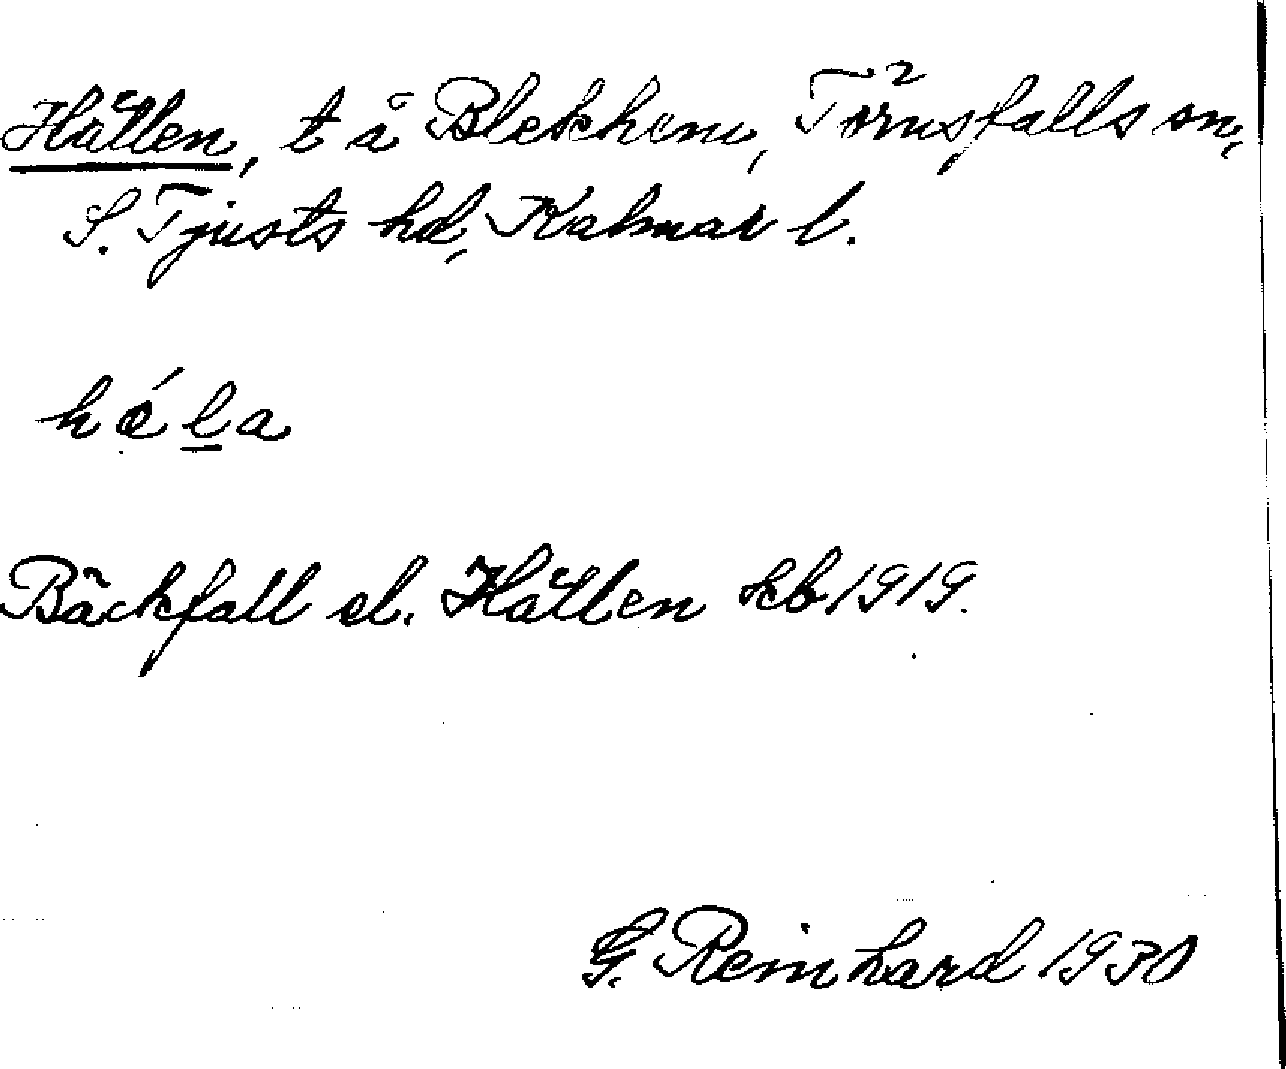 Hållen, t å Blekhem, Törnsfalls sn,
S. Tjusts hd, Kalmar l.
hóla
Bäckfall el. Hållen kb 1919.
G. Reinhard 1930